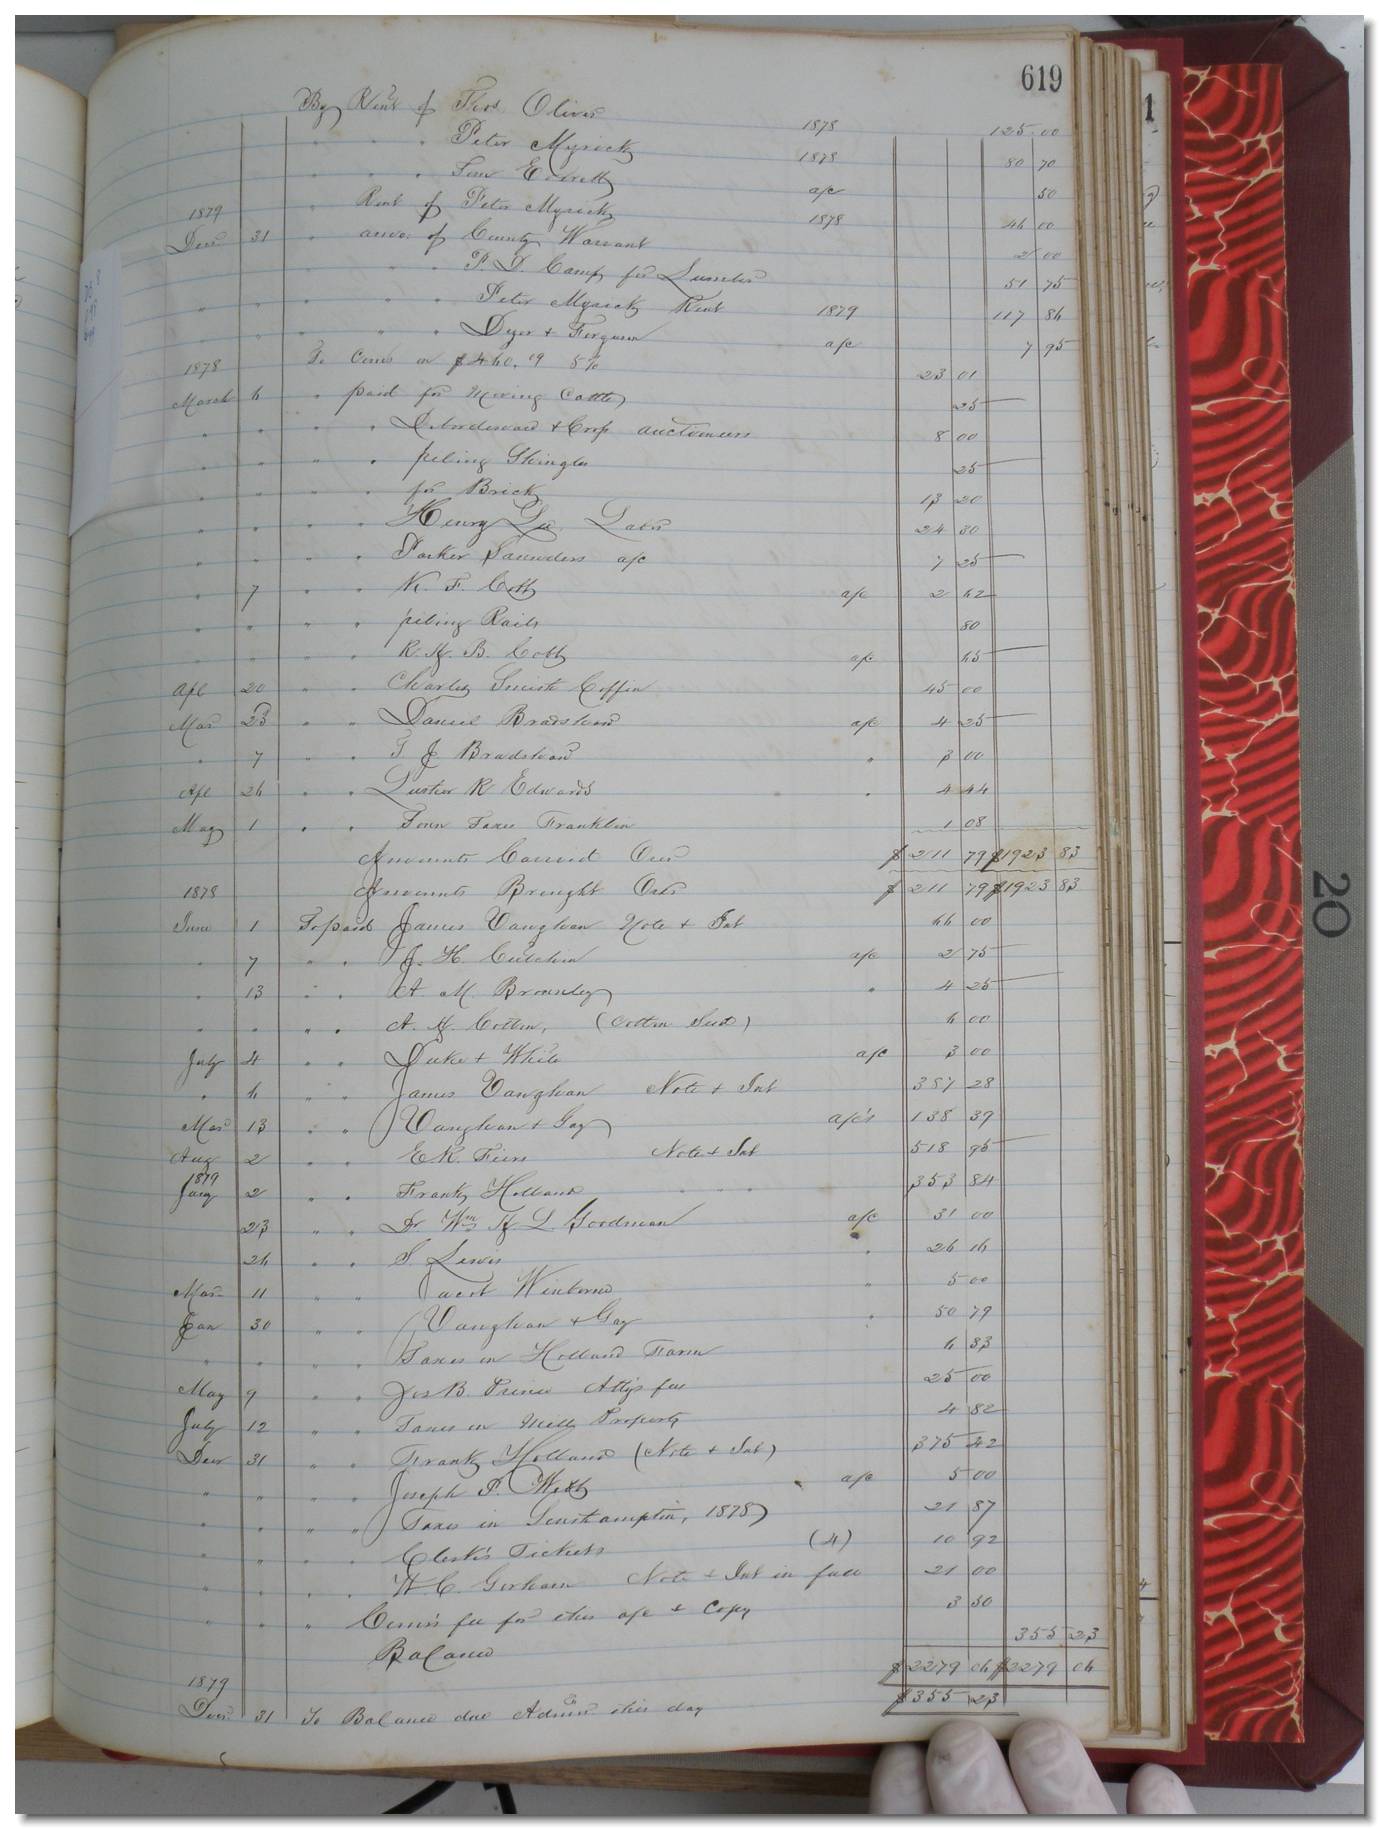 619
By Rent of Thos Oliver 1878 125.00
" " " Peter Myrick 1878 80 70
" " a/c 50
1879 " Rent of Peter Myrick 1878 46 00
Decr 31 " amo. of County Warrant 2 00
" " " " P. D. Camp for Lumber 51 75
" " " " Peter Myrick Rent 1879 117 86
" " " " Dyer & Ferguson a/c 7 95
1878 To Coms on $460.19 5% 23 01
March 6 " paid for Moving Cattle 25
" " " " & Crop auctioneers 8 00
" " " " pileing Shingles 25
" " " " for Brick 13 20
" " " " Henry Lee, Labor 24 80
" " " " Parker Saunders a/c 7 25
" 7 " " N. F. Cobb a/c 2 62
" " " " pileing Rails 80
" " " " R. H. B. Cobb a/c 65
Apl 20 " " Charley Smith Coffin 45 00
Mar 23 " " Daniel Bradshaw a/c 4 25
" 7 " " T J. Bradshaw " 3 00
Apl 26 " " R Edwards " 4 44
May 1 " " Town Taxes Franklin 1 08
Amounts Carried Over $211 79 $1923 83
1878 Amounts Brought Over $211 79 $1923 83
June 1 To paid James Vaughan Note & Int 66 00
" 7 " " J. H. Cutchin a/c 2 75
" 13 " " A. M. Brownley " 4 25
" " " " A. H. Cotten, (Cotton Seed) 6 00
July 4 " " Duke & White a/c 3 00
" 6 " " James Vaughan Note & Int 357 28
Mar 13 " " Vaughan & Gay a/c's 138 39
Aug 2 " " E R. Note & Int 518 95
1879
Jany 2 " " Frank Holland " " " 353 84
23 " " Dr Wm H L. Goodman a/c 31 00
26 " " S Lewis " 26 16
Mar 11 " " Jacob Winborne " 5 00
Jan 30 " " Vaughan & Gay " 50 79
" " " " Taxes on Holland Farm 6 83
May 9 " " Jos B. Prince Attys fee 25 00
July 12 " " Taxes on Mill Property 4 82
Decr 31 " " Frank Holland (Note & Int) 375 42
" " " " Joseph P. Webb a/c 5 00
" " " " Taxes in Southampton, 1878 21 87
" " " " Clerk's Tickets (4) 10 92
" " " " W. C. Gorham Note & Int in full 21 00
" " " Comr's fee for this a/c & Copy 3 50
Balance 355 23
$2279 06 $2279 06
1879 $355 23
Decr. 31 To Balance due Admr this day
1
20